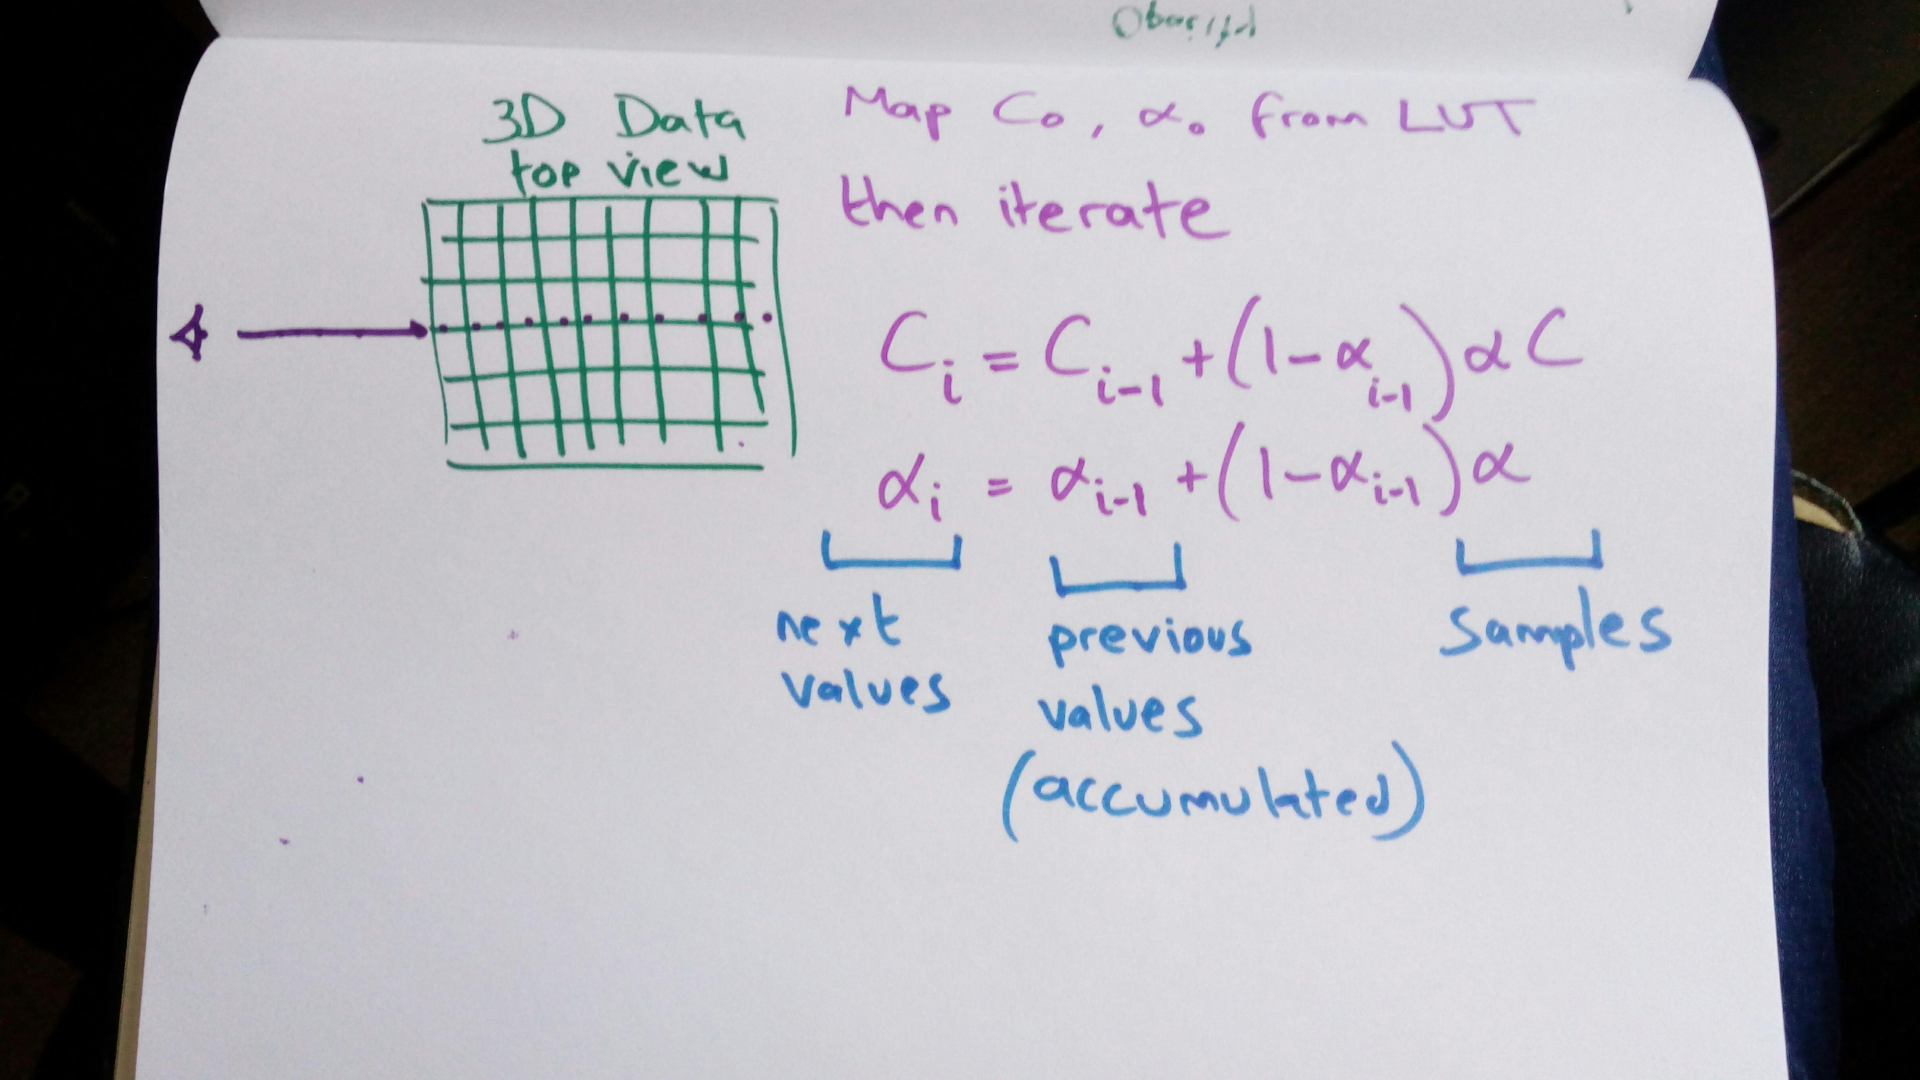 3D Data
top view
Map C₀, α₀ from LUT
then iterate
Cᵢ = Cᵢ₋₁ + (1 - αᵢ₋₁) α C
αᵢ = αᵢ₋₁ + (1 - αᵢ₋₁) α
next
values
previous
values
(accumulated)
samples